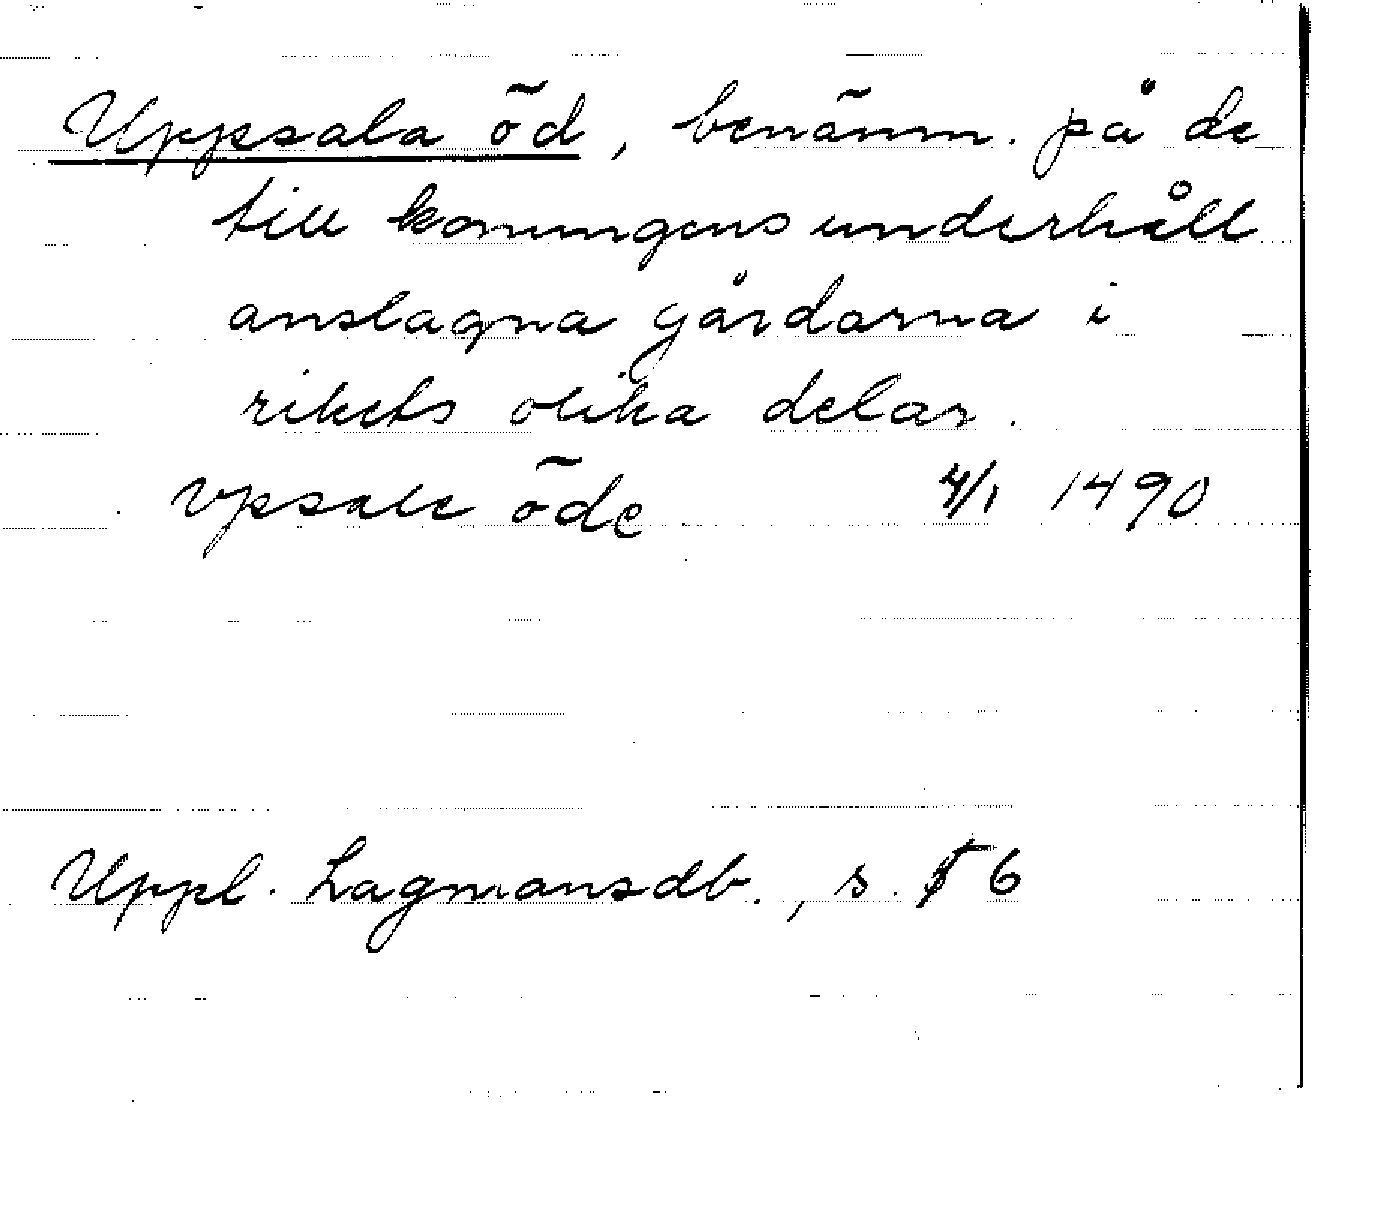 Uppsala öd, benämn. på de
till konungens underhåll
anslagna gårdarna i
rikets olika delar.
Vpsale öde 4/1 1490
Uppl. Lagmansdb., s. 56